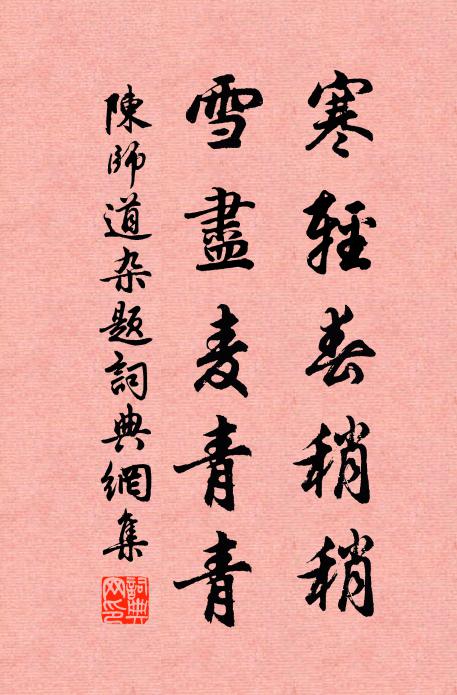 寒輕春稍稍
雪盡麦青青
陳師道杂题詞典網集
詞典
网印